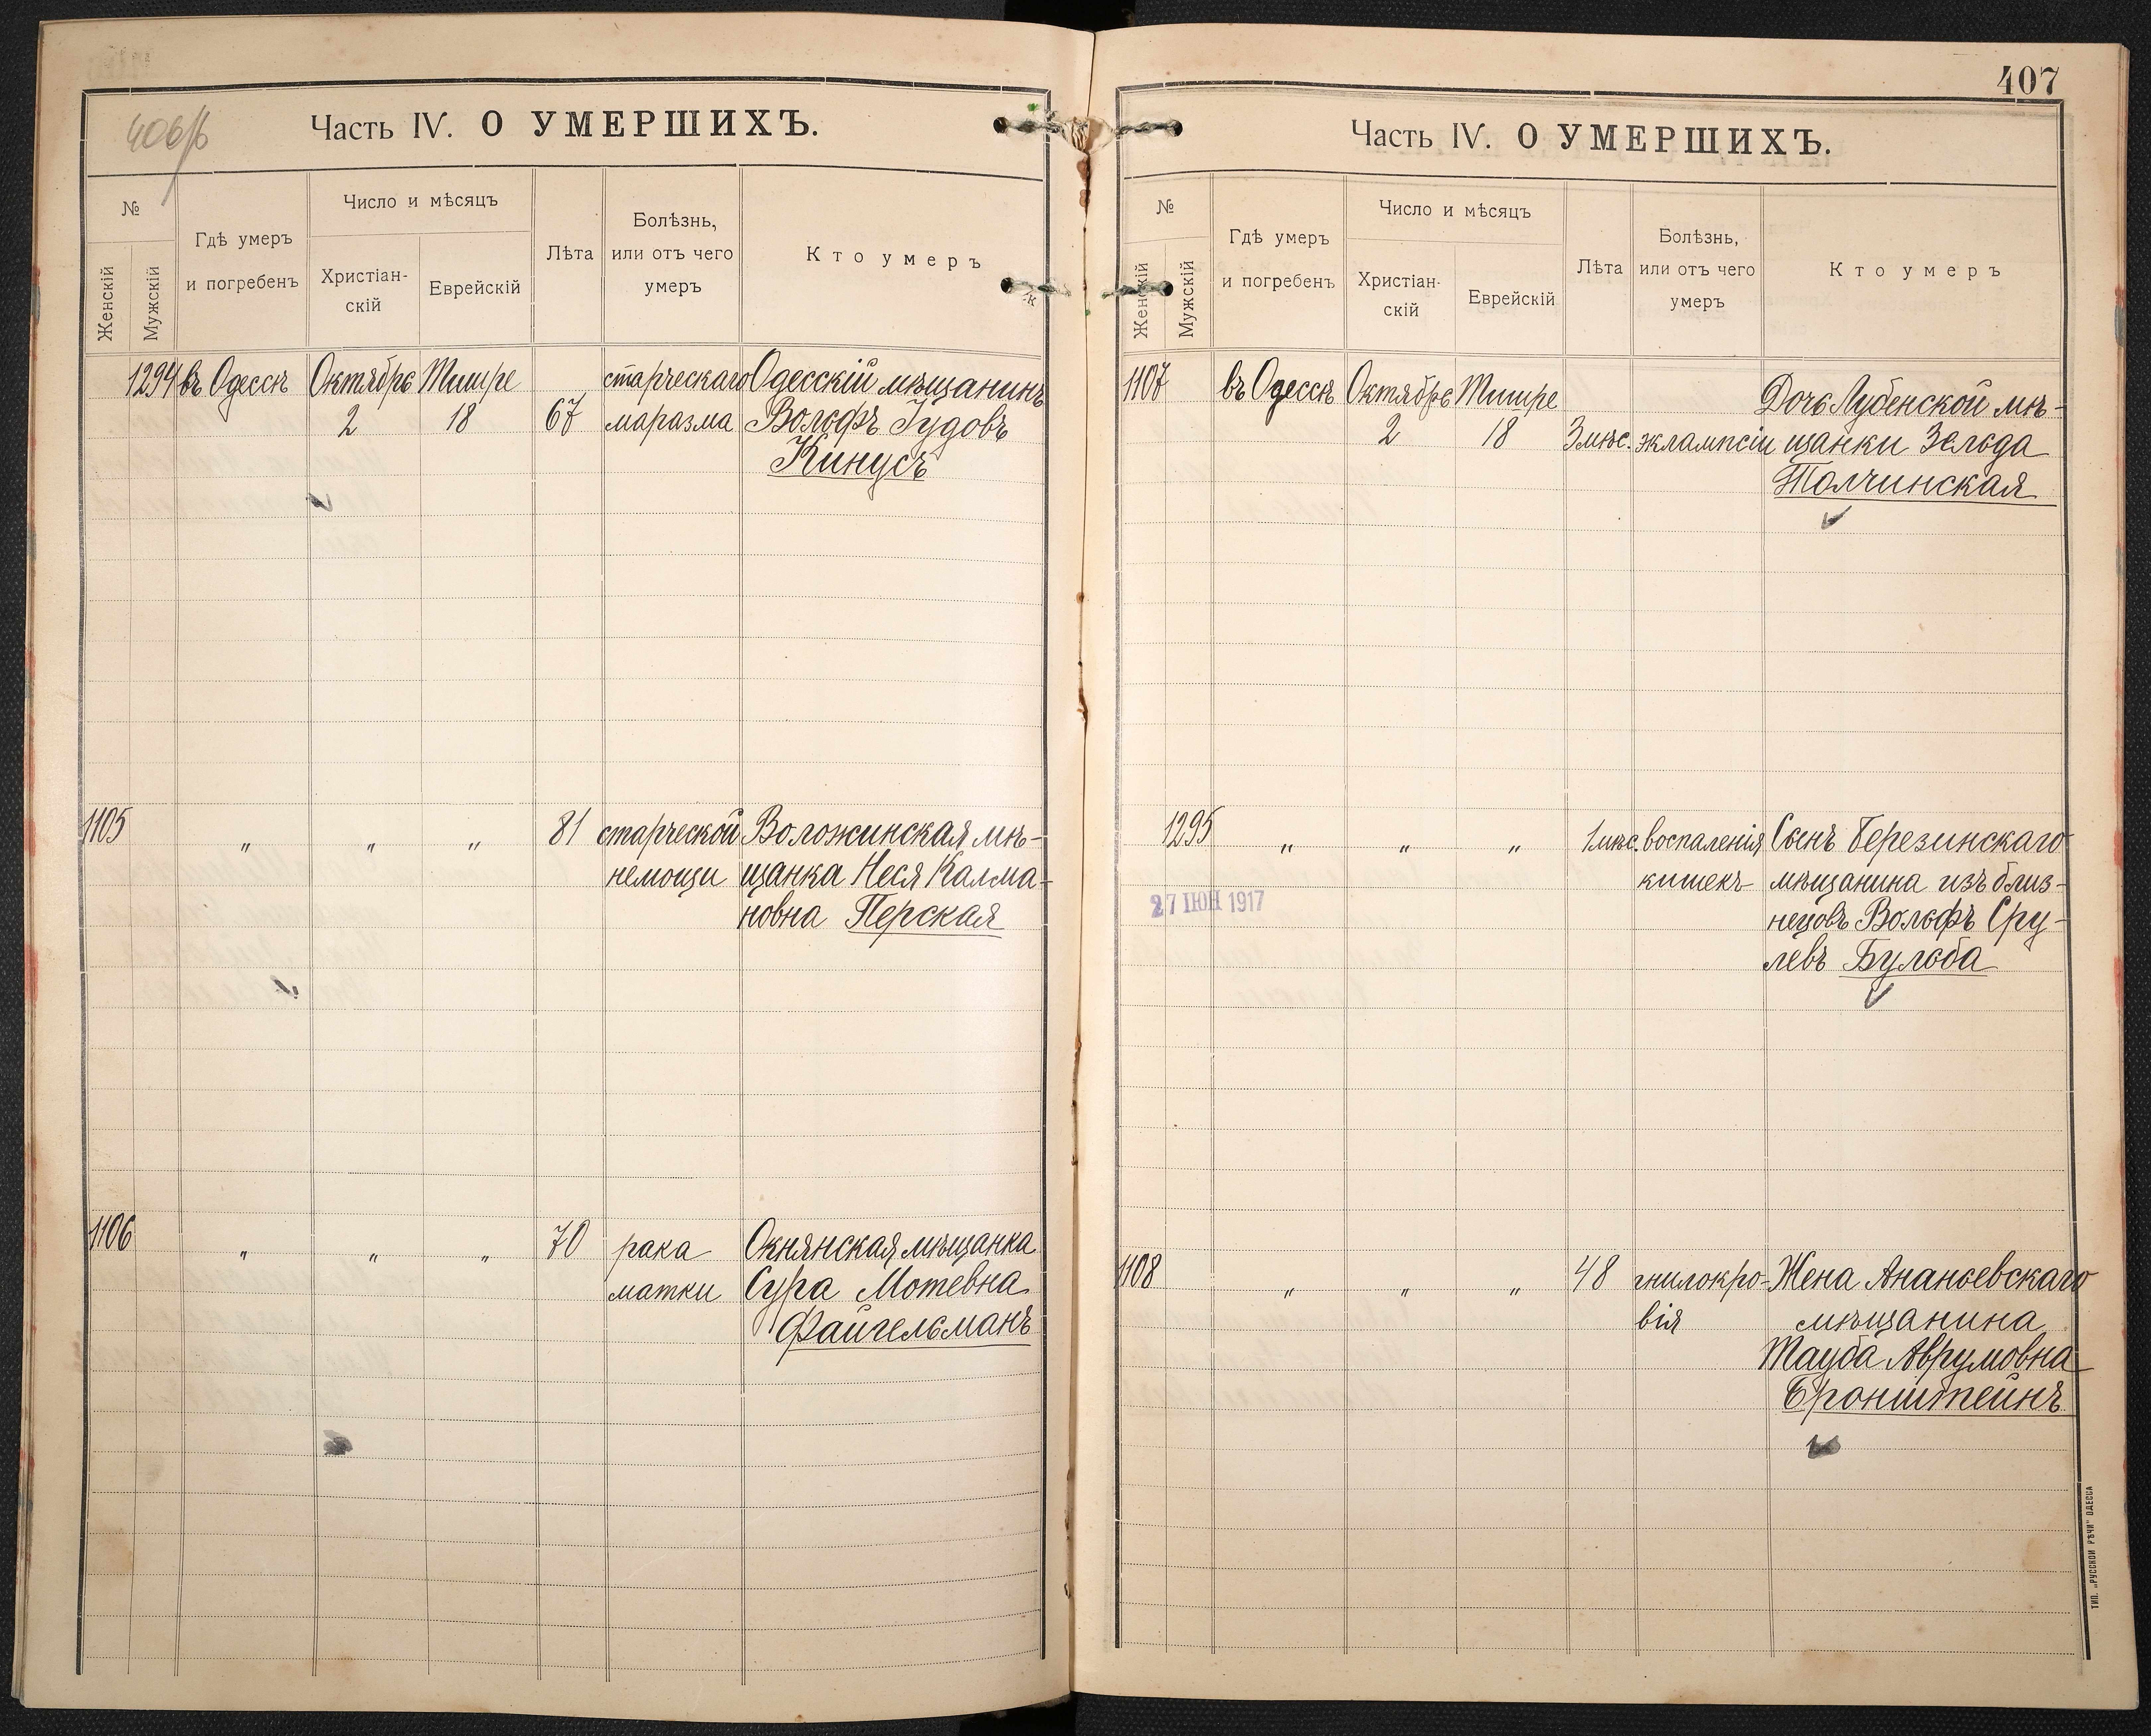 406/б
Часть IV. О УМЕРШИХЪ.
№
Женскій
Мужскій
Гдѣ умеръ
и погребенъ
Число и мѣсяцъ
Христіан-
скій
Еврейскій
Лѣта
Болѣзнь,
или отъ чего
умеръ
Кто умеръ
1294 въ Одессѣ Октябрь Тишре старческаго Одесскій мѣщанинъ
2 18 67 маразма Вольфъ Іудовъ
Кинусъ
1105 " " " 81 старческой Воложинская мѣ-
немощи щанка Неся Калма-
новна Перская
1106 " " " 70 рака Окнянская мѣщанка
матки Сура Мотевна
Файгельманъ
407
Часть IV. О УМЕРШИХЪ.
№
Женскій
Мужскій
Гдѣ умеръ
и погребенъ
Число и мѣсяцъ
Христіан-
скій
Еврейскій
Лѣта
Болѣзнь,
или отъ чего
умеръ
Кто умеръ
1107 въ Одессѣ Октябрь Тишре Дочь Лубенской мѣ-
2 18 3 мѣс. экламписіи щанки Зельда
Толчинская
1295 " " " 1 мѣс. воспаленія Сынъ Березинскаго
кишекъ мѣщанина изъ близ-
нецовъ Вольфъ Сру-
левъ Бульба
27 ІЮН 1917
1108 " " " 48 гнилокро- Жена Ананьевскаго
вія мѣщанина
Тауба Аврумовна
Бронштейнъ
ТИП. „РУССКОЙ РѢЧИ" ОДЕССА